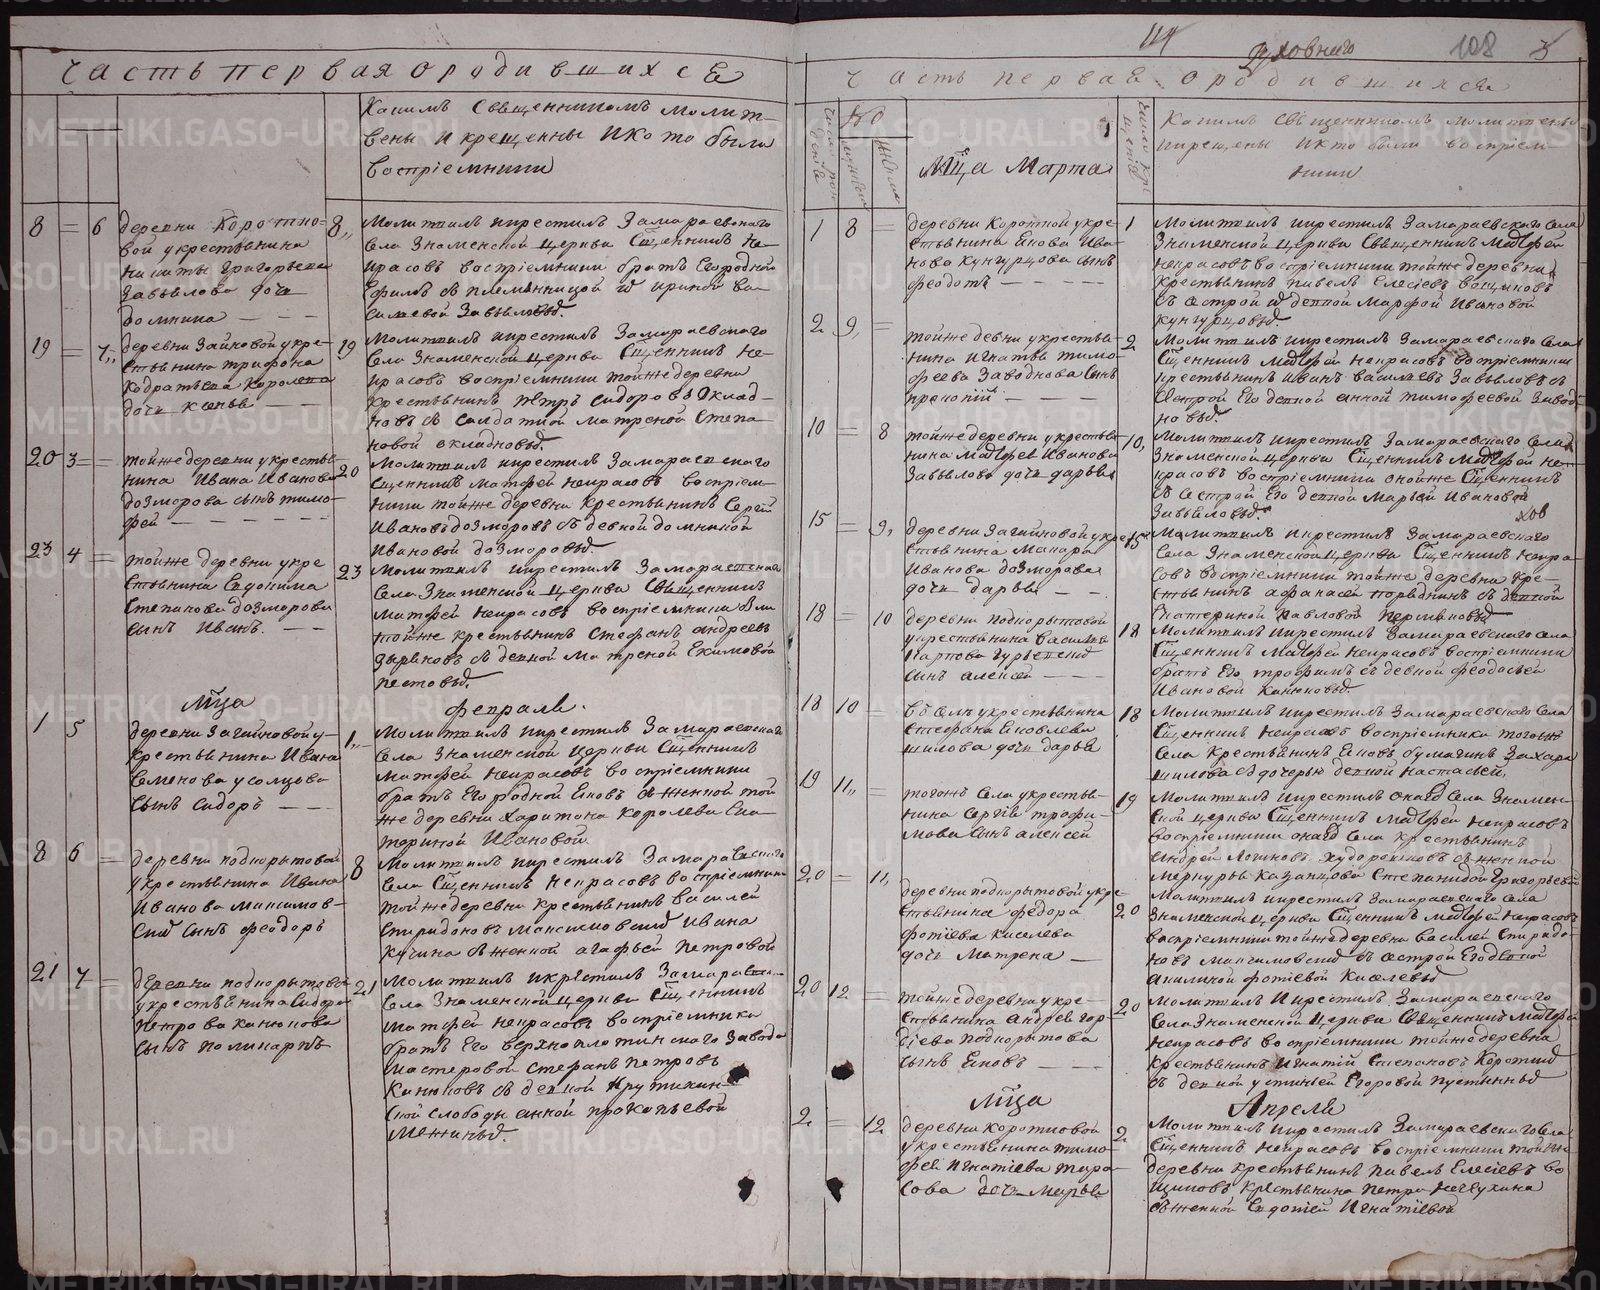 часть первая о родившихся
Какимъ священникомъ молит-
вены и крещенны и кто были
воспріемники
8 = 6 деревни Коротко- 8
вой укрестьянина
никиты Григорьева
Завьялова дочь
домника
Молитвилъ икрестилъ Замараевскаго
села Знаменской церкви Сщенникъ Не-
красовъ воспріемники братъ Егородной
Ефимъ съ племянницой ириной ва-
сильевой Завьяловыд.
19 = 7 деревни Зайковой укре- 19
стьянина трифона
кодратьева Королева
дочь ксенья
Молитвилъ икрестилъ Замараевскаго
села Знаменской церкви Сщенникъ Не-
красовъ воспріемники тойже деревни
крестьянинъ петръ сидоровъ Оклад-
новъ съ салдаткой матреной степа-
новой окладновыд.
20 3 = тойже деревни укрестья- 20
нина Ивана Иванова
дозморова сынъ тимо-
фей
Молитвилъ икрестилъ Замараевскаго
Сщенникъ матфей некрасовъ воспріем-
ники тойже деревни крестьянинъ Сергей
Ивановъ дозморовъ съ девкой домникой
Ивановой дозморовыд.
23 4 = тойже деревни укре 23
стьянина Евдокима
Степанова дозморова
сынъ Иванъ.
Молитвилъ икрестилъ Замараевскаго
села Знаменской церкви Священникъ
матфей некрасовъ воспріемники
тойже крестьянинъ Стефанъ андреевъ
зыряновъ съ девкой матреной Екимовой
пестовыд.
Мца февраля.
1 5 деревни Загайновой у- 1
крестьянина Ивана
Семенова усолцова
сынъ сидоръ
Молитвилъ икрестилъ Замараевскаго
села Знаменской церкви Сщенникъ
матфей некрасовъ воспріемники
братъ Его родной Яковъ съ женкой той
же деревни Харитона Королева Ека-
териной Ивановой
8 6 = деревни подкорытовой 8
укрестьянина Ивана
Иванова максимов-
скид сынъ феодоръ
Молитвилъ икрестилъ Замараевскаго
села Сщенникъ некрасовъ воспріемники
тойже деревни крестьянинъ василей
спиридоновъ максимовскид Ивана
кусина съ женкой агафьей петровой
21 7 = деревни подкорытовой 21
укрестьянина сидора
петрова канюкова
сынъ поликарпъ
Молитвилъ икрестилъ Замараевска-
села Знаменской церкви Сщенникъ
матфей некрасовъ воспріемника
братъ Его верхноплотинскаго завода
мастеровой стефанъ петровъ
Канюковъ съ девкой крутихин-
ской слободы анной прокопьевой
Межиныд.
114 Духовнаго 108
часть первая о родившихся
Мца Марта
Какимъ священникомъ молитвены
икрещены икто были воспріем-
ники
1 8 = деревни Короткой укре- 1
стьянина якова Ива-
нова кунгурцова сынъ
феодотъ
Молитвилъ икрестилъ Замараевскаго села
Знаменской церкви Священникъ матфей
некрасовъ воспріемники тойже деревни
крестьянинъ павелъ Елесіевъ вощиковъ
съ сестрой девкой марфой Ивановой
кунгурцовыд.
2 9 = тойже девни укрестья- 2
нина игнатья тимо-
феева Заводнова сынъ
прокопій
Молитвилъ икрестилъ Замараевскаго села
Сщенникъ матфей некрасовъ воспріемники
крестьянинъ иванъ васильевъ Завьяловъ съ
сестрой Его девкой анной тимофеевой завод-
новыд.
10 = 8 тойже деревни укрестья- 10
нина матфея Иванова
Завьялова дочь дарья
Молитвилъ икрестилъ Замараевскаго села
Знаменской церкви Сщенникъ матфей не-
красовъ воспріемники онойже Сщенникъ
съ сестрой Его девкой Марьей Ивановой
Завьяловыд.
15 = 9 деревни Загайновой укре- 15
стьянина Макара
Иванова дозморова
дочь дарья
Молитвилъ икрестилъ Замараевскаго
села Знаменской церкви Сщенникъ некра
совъ воспріемники тойже деревни кре-
стьянинъ афанасей порядинъ съ девкой
Екатериной павловой пермяковыд
18 = 10 деревни подкорытовой 18
укрестьянина василья
карпова гурьевскид
сынъ алексей
Молитвилъ икрестилъ Замараевскаго села
Сщенникъ матфей некрасовъ воспріемники
братъ Его трофимъ съ девкой феодосьей
Ивановой Канюковыд.
18 10 = въ селѣ укрестьянина 18
стефана Яковлева
шилова дочь дарья
Молитвилъ икрестилъ Замараевскаго села
Сщенникъ некрасовъ воспріемники тогожъ
села крестьянинъ яковъ бумагинъ Захара
шилова съ дочерью девкой настасьей.
19 11 = тогожъ села укрестья- 19
нина Сергія трофи-
мова сынъ алексей
Молитвилъ икрестилъ онагожъ села Знамен-
ской церкви Сщенникъ матфей некрасовъ
воспріемники онагожъ села крестьянинъ
Андрей логиновъ худороожковъ съ женкой
меркурья казанцова степанидой григорьевой
20 = 11 деревни подкорытовой укре- 20
стьянина федора
фотіева киселева
дочь матрена
Молитвилъ икрестилъ Замараевскаго села
Знаменской церкви Сщенникъ матфей некрасовъ
воспріемники тойже деревни василей спиридо-
новъ максимовскид съ сестрой Его девкой
акилиной фотіевой киселевыд
20 12 = тойже деревни укре- 20
стьянина андрея гор-
діева подкорытова
сынъ яковъ
Молитвилъ икрестилъ Замараевскаго
села Знаменской церкви Священникъ матфей
некрасовъ воспріемники тойже деревни
крестьянинъ игнатій степановъ Короткид
съ девкой устиньей Егоровой пустынныд
Мца Апреля
2 = 12 деревни коротковой 2
укрестьянина тимо-
фея игнатіева тара-
сова дочь марья
Молитвилъ икрестилъ Замараевскаго села
Сщенникъ некрасовъ воспріемники тойже
деревни крестьянинъ павелъ Елесіевъ во
щиковъ крестьянина петра нечухина
съ женкой Евдокіей Игнатіевой